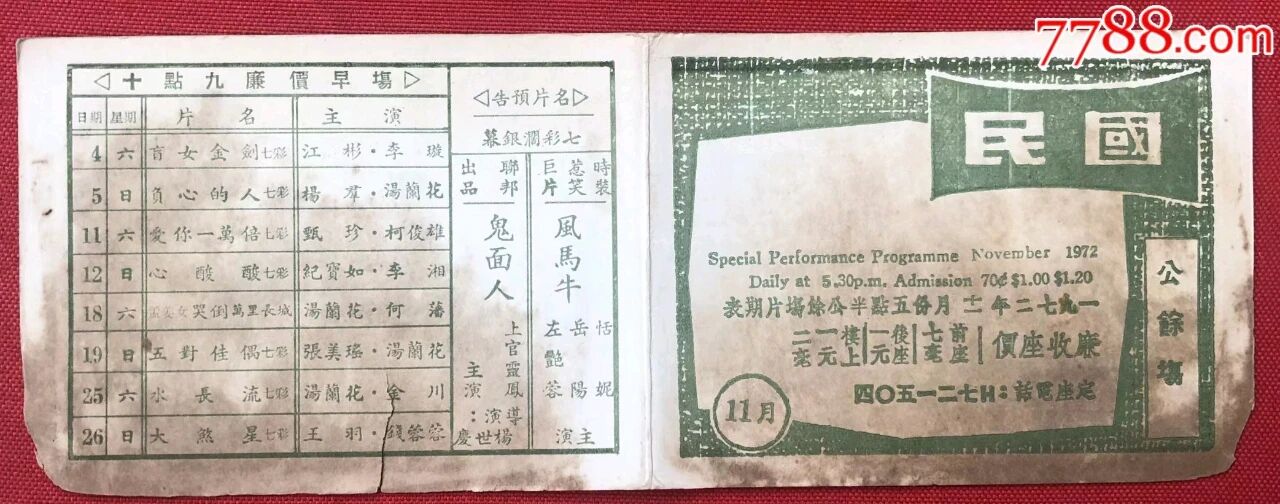 ◁十點九廉價早塲▷
日期 星期 片名 主演
4 六 盲女金劍七彩 江彬・李璇
5 日 負心的人七彩 楊羣・湯蘭花
11 六 愛你一萬倍七彩 甄珍・柯俊雄
12 日 心酸酸七彩 紀寶如・李湘
18 六 孟姜女哭倒萬里長城七彩 湯蘭花・何藩
19 日 五對佳偶七彩 張美瑤・湯蘭花
25 六 水長流七彩 湯蘭花・金川
26 日 大煞星七彩 王羽・錢蓉蓉
▷名片預告◁
七彩濶銀幕
時裝惹笑巨片
風馬牛
恬妮
岳陽
左艷蓉
主演
聯邦出品
鬼面人
上官靈鳳
主演
導演：楊世慶
國民
公餘塲
Special Performance Programme November 1972
Daily at 5.30p.m. Admission 70¢ $1.00 $1.20
一九七二年十一月份五點半公餘塲片期表
廉收座價 前座七毫 後座一元 樓上一元二毫
定座電話：H七二一五〇四
11月
7788.com